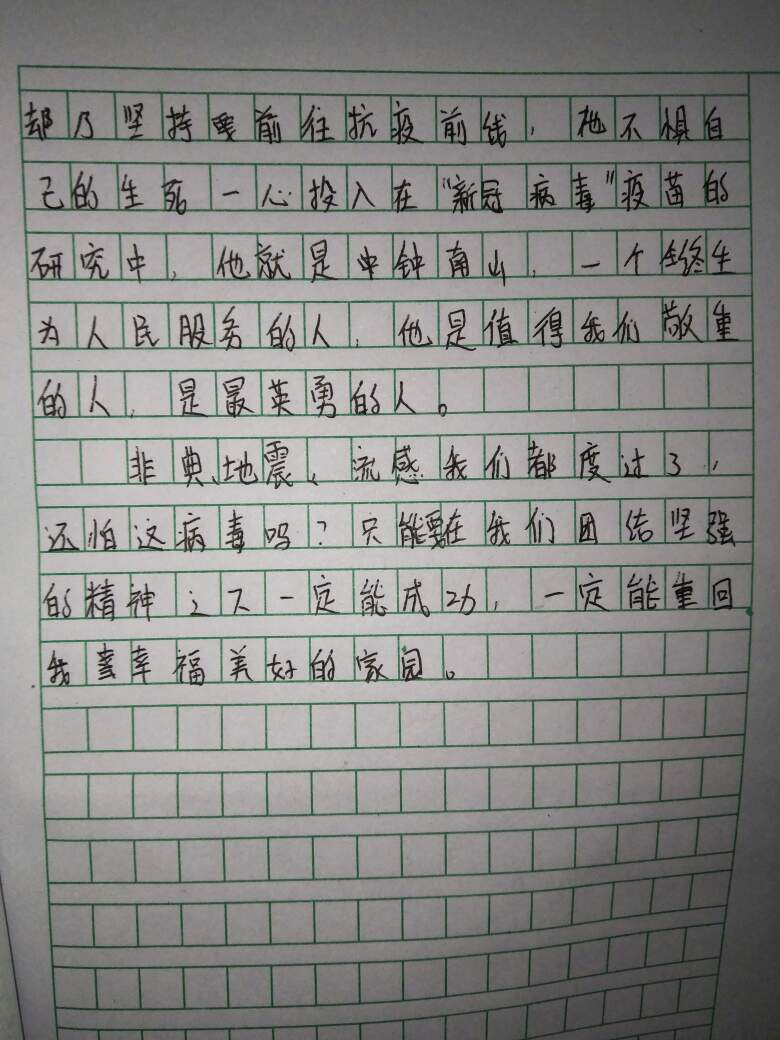 却乃坚持要前往抗疫前线，他不惧自
己的生死一心投入在“新冠病毒”疫苗的
研究中，他就是中钟南山，一个终生
为人民服务的人，他是值得我们敬重
的人，是最英勇的人。
非典、地震、流感我们都度过了，
还怕这病毒吗？只能要在我们团结坚强
的精神之下一定能成功，一定能重回
我幸福美好的家园。